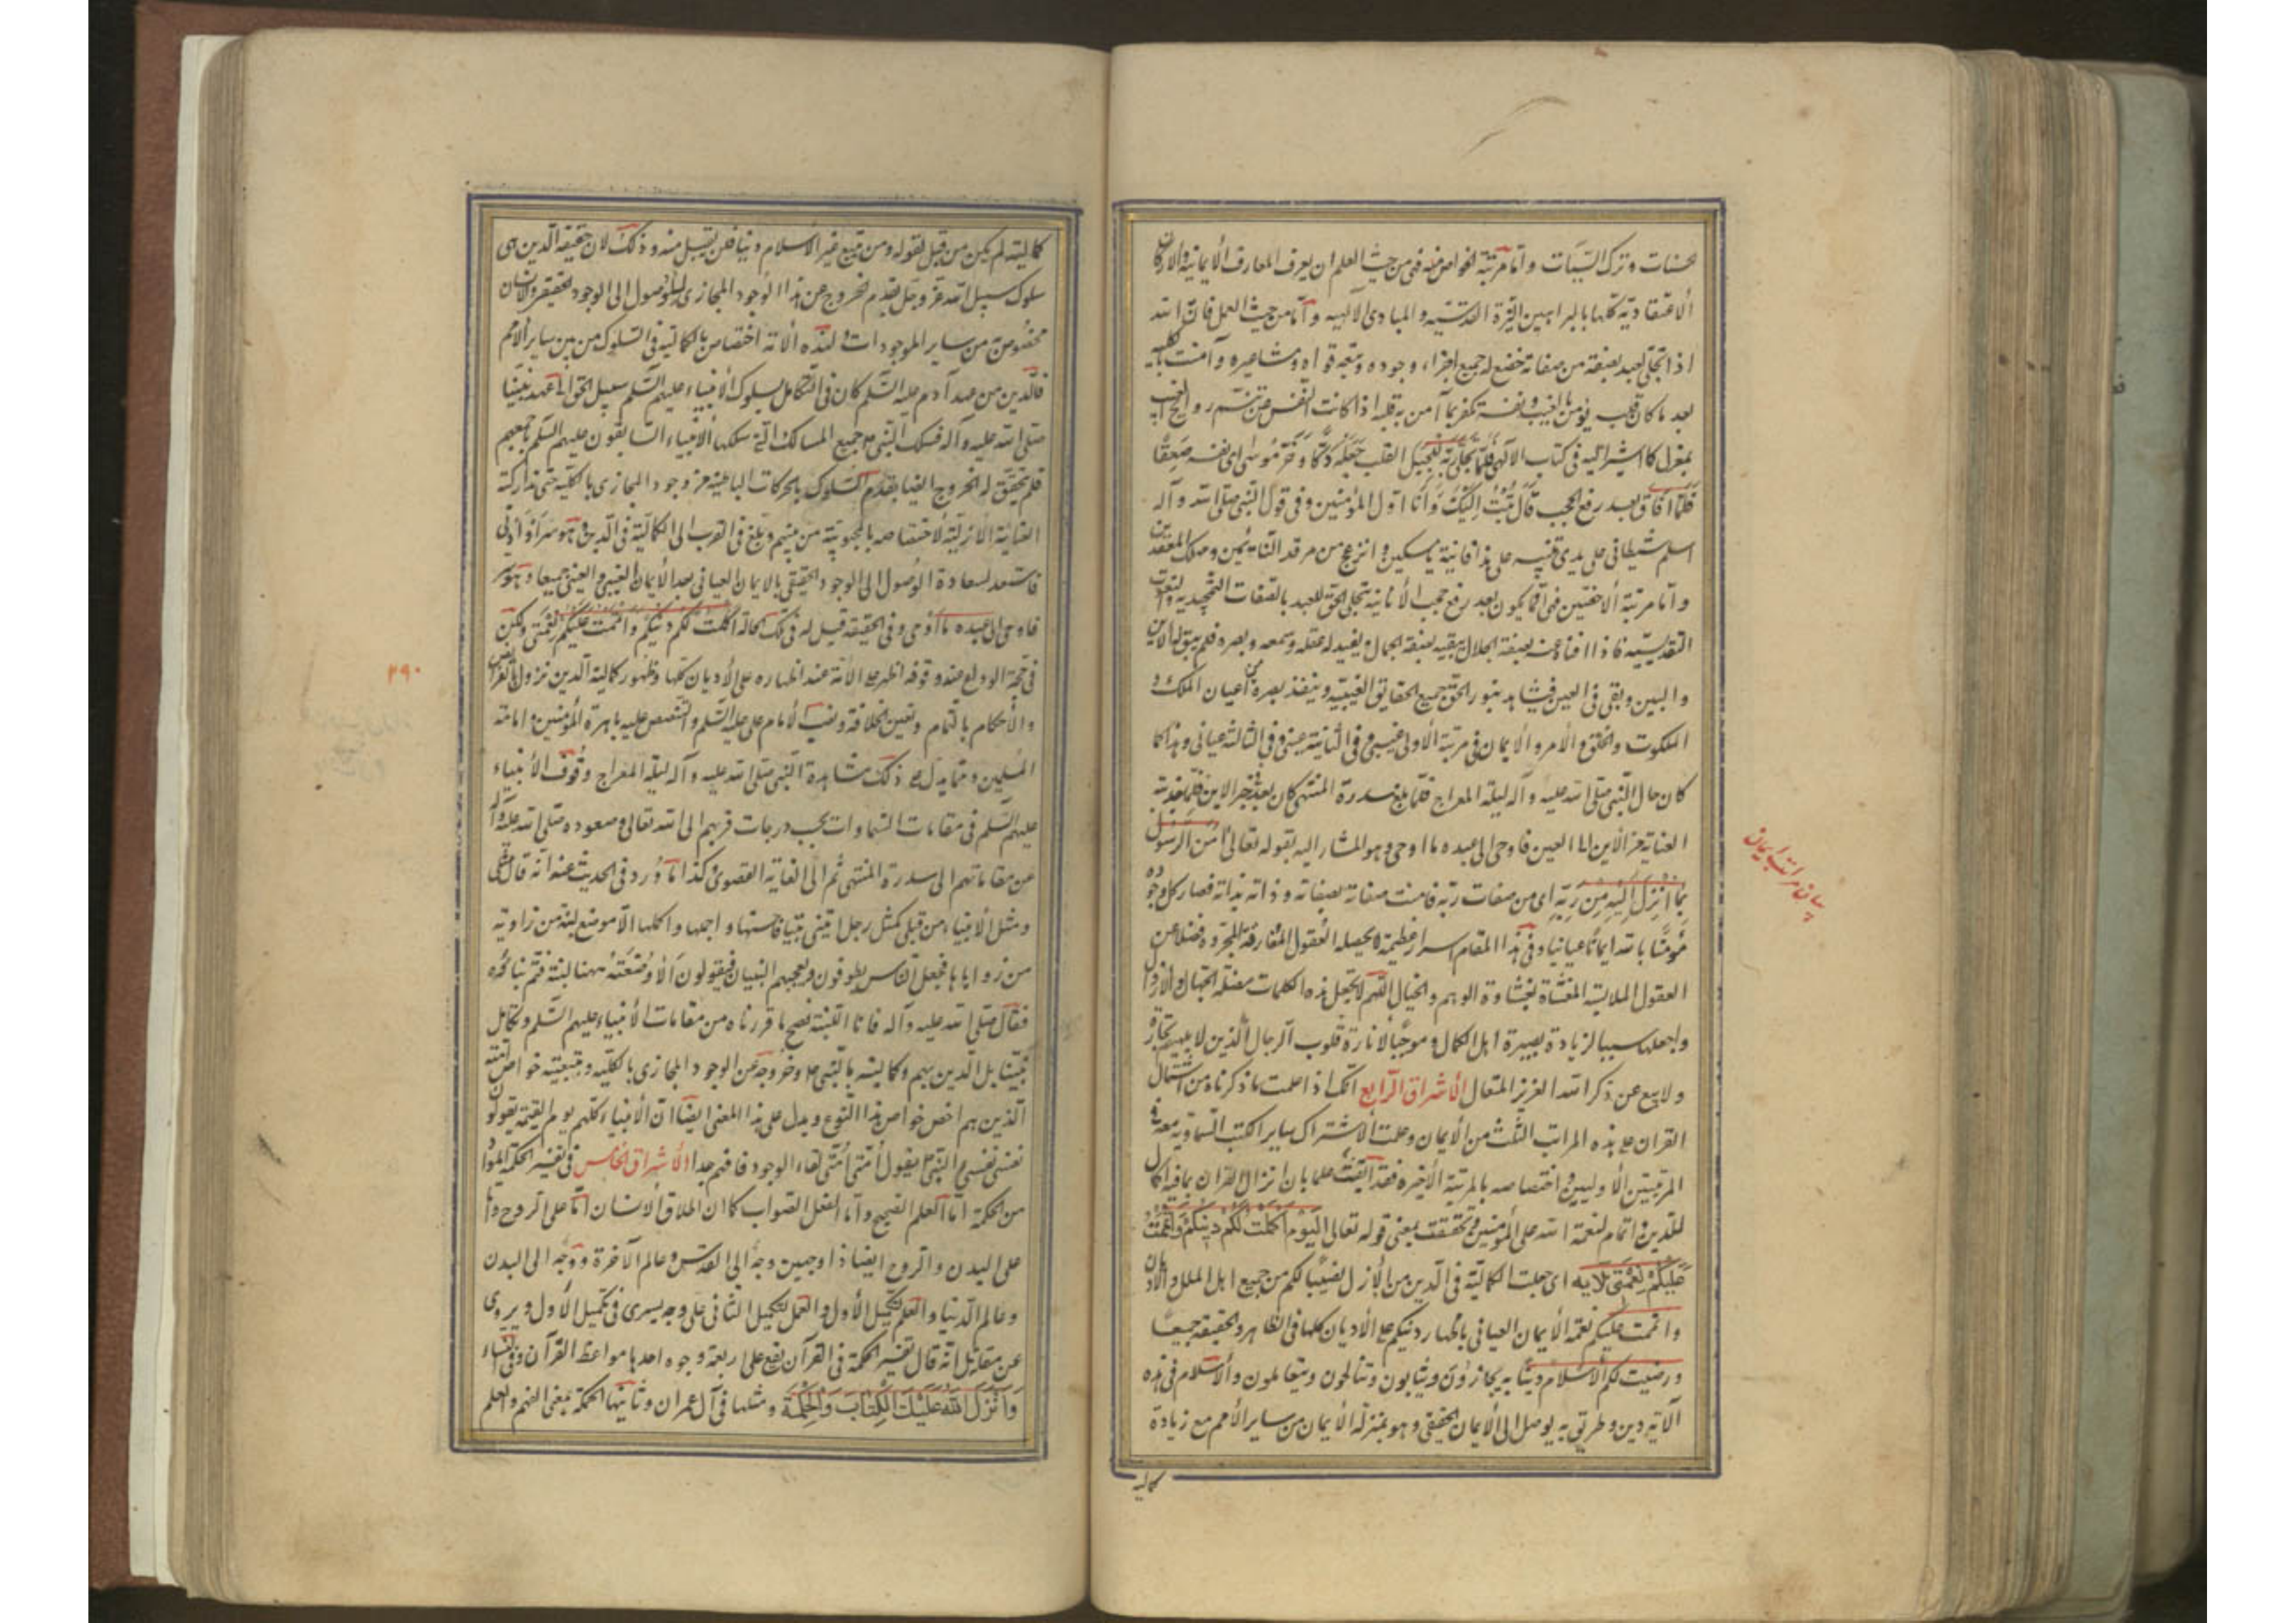 الحسنات وترك السيئات واما مرتبة الخواص منه فهي من حيث العلم ان يعرف المعارف الايمانية والاركان
الاعتقادية كلها بالبراهين النيرة القدسية والمبادي الالهية واما من حيث العمل فان الله
اذا تجلى لعبد بصفة من صفاته خضع له جميع اجزاء وجوده وجميع قواه ومشاعره وآمنت بالكلية
بعد ما كان قلبه يؤمن بالغيب ونفسه تكفر بما آمن به قلبه اذا كانت النفس عن تنسم روائح الغيب
بمعزل كما اشير اليه في كتاب الالهي فلما تجلى ربه للجبل القلب جعله دكا وخر موسى اى نفسه صعقا
فلما افاق بعد رفع الحجب قال تبت اليك وانا اول المؤمنين وفي قول النبي صلى الله وآله
اسلم شيطاني على يدي
واما مرتبة الاخصين فهي انما يكون بعد رفع حجب الانانية تجلى الحق للعبد بالصفات التمجيدية والنعوت
التقديسية فاذا افناه عنه بصفة الجلال يبقيه بصفة الجمال ويفيد له عقله وسمعه وبصره فلم يبق له الاين
والبين وبقي في العين فيشاهد بنور الحق جميع الحقايق الغيبية وينفذ بصره في اعيان الملك و
الملكوت والخلق والامر والايمان في مرتبة الاولى غيبي وفي الثانية عيني وفي الثالثة عياني وهذا كما
كان حال النبي صلى الله عليه وآله ليلة المعراج فلما بلغ سدرة المنتهى كان بعد في حيز الاين فلما جذبته
العناية عن الاين الى العين فاوحى الى عبده ما اوحى وهو المشار اليه بقوله تعالى آمن الرسول
بما انزل اليه من ربه اى من صفات ربه فآمنت صفاته بصفاته وذاته بذاته فصار كل وجوده
مؤمنا بالله ايمانا عيانيا وفي هذا المقام اسرار عظيمة لا يحصله العقول المفارقة المجردة فضلا عن
العقول الملابسة المغشاة بغشاوة الوهم والخيال اللهم لا تجعل هذه الكلمات مضلة الجهال والارذال
واجعلها سببا لزيادة بصيرة اهل الكمال وموجبا لانارة قلوب الرجال الذين لا تلهيهم تجارة
ولا بيع عن ذكر الله العزيز المتعال الاشراق الرابع انك اذا علمت ما ذكرناه من اشتمال
القران على هذه المراتب الثلث من الايمان وعلمت الاشتراك ساير الكتب السماوية معه في
المرتبتين الاوليين واختصاصه بالمرتبة الاخيرة فقد ايقنت علما بان انزال القران بما فيه اكمال
للدين واتمام لنعمة الله على المؤمنين وتحققت بمعنى قوله تعالى اليوم اكملت لكم دينكم واتممت
عليكم نعمتي الآية اى جعلت الكمالية في الدين من الازل نصيبا لكم من جميع اهل الملل والاديان
واتممت عليكم نعمة الايمان العياني باظهار دينكم على الاديان كلها في الظاهر والحقيقة جميعا
ورضيت لكم الاسلام دينا به يجازون ويثابون ويتعاملون والاسلام في هذه
الآية دين وطريق به يوصل الى الايمان الحقيقي وهو بمنزلة الايمان من ساير الامم مع زيادة
كمالية
بيان مراتب ايمان
كمالية لم يكن من قبل لقوله ومن يبتغ غير الاسلام دينا فلن يقبل منه وذلك لان حقيقة الدين هى
سلوك سبيل الله عز وجل بقدم الخروج عن هذا الوجود المجازى للوصول الى الوجود الحقيقي والانسان
مخصوص من ساير الموجودات ولهذه الامة اختصاص بالكمالية في السلوك من بين ساير الامم
فالدين من عهد آدم عليه السلم كان في التكامل بسلوك الانبياء عليهم السلم سبيل الحق الى عهد نبينا
صلى الله عليه وآله فسلك النبي ص جميع المسالك التي سلكها الانبياء السابقون عليهم السلم باجمعهم
فلم يتحقق له الخروج ايضا بقدم السلوك بالحركات الباطنية عن وجود المجازى بالكلية حتى تداركته
العناية الازلية لاختصاصه بالمحبوبية من بينهم وبلغ في القرب الى الكمالية في الدين وهو سر او ادنى
فاستسعد لسعادة الوصول الى الوجود الحقيقي بالايمان العياني بعد الايمان الغيبي والعيني جميعا وهو سر
فاوحى الى عبده ما اوحى وفي الحقيقة قيل له في تلك الحالة اكملت لكم دينكم واتممت عليكم نعمتي ولكن
في حجة الوداع عند وقوفه اظهر على الامة عند اظهاره على الاديان كلها وظهور كمالية الدين بنزول الفرائض
والاحكام بالتمام وتعيين الخلافة ونصب الامام على عليه السلم والتنصيص عليه بامرة المؤمنين وامامة
المسلمين ومما يدل على ذلك مشاهدة النبي صلى الله عليه وآله ليلة المعراج وقوف الانبياء
عليهم السلم في مقامات السماوات بحسب درجات قربهم الى الله تعالى وصعوده صلى الله عليه وآله
عن مقاماتهم الى سدرة المنتهى ثم الى الغاية القصوى وكذا ما ورد في الحديث عنه انه قال مثلى
ومثل الانبياء من قبلى كمثل رجل ابتنى بيتا فاحسنها واجملها واكملها الا موضع لبنة من زاوية
من زواياها فجعل الناس يطوفون ويعجبهم البنيان فيقولون الا وضعت ههنا لبنة فتم بناؤه
فقال صلى الله عليه وآله فانا اللبنة فصح ما قررناه من مقامات الانبياء عليهم السلم وتكامل
الدين بهم وكماليته بالنبي ص وخروجه عن الوجود المجازى بالكلية وبتبعيته خواص امته
الذين هم اخص خواص هذا النوع ويدل على هذا المعنى ايضا ان الانبياء كلهم يوم القيمة يقولون
نفسى نفسى والنبي ص يقول امتى امتى لفناء الوجود فافهم جدا الاشراق الخامس في تفسير الحكمة المراد
من الحكمة اما العلم الصحيح واما الفعل الصواب كما ان اطلاق الانسان اما على الروح واما
على البدن والروح ايضا ذا وجهين وجه الى القدس وعالم الآخرة ووجه الى البدن
وعالم الدنيا والعلم لتكميل الاول والعمل لتكميل الثاني على وجه يسرى في تكميل الاول ويروى
عن مقاتل انه قال تفسير الحكمة في القرآن يقع على اربعة وجوه احدها مواعظ القرآن وفي النساء
وانزل الله عليك الكتاب والحكمة ومثلها في آل عمران وثانيها الحكمة بمعنى الفهم والعلم
۲۹۰